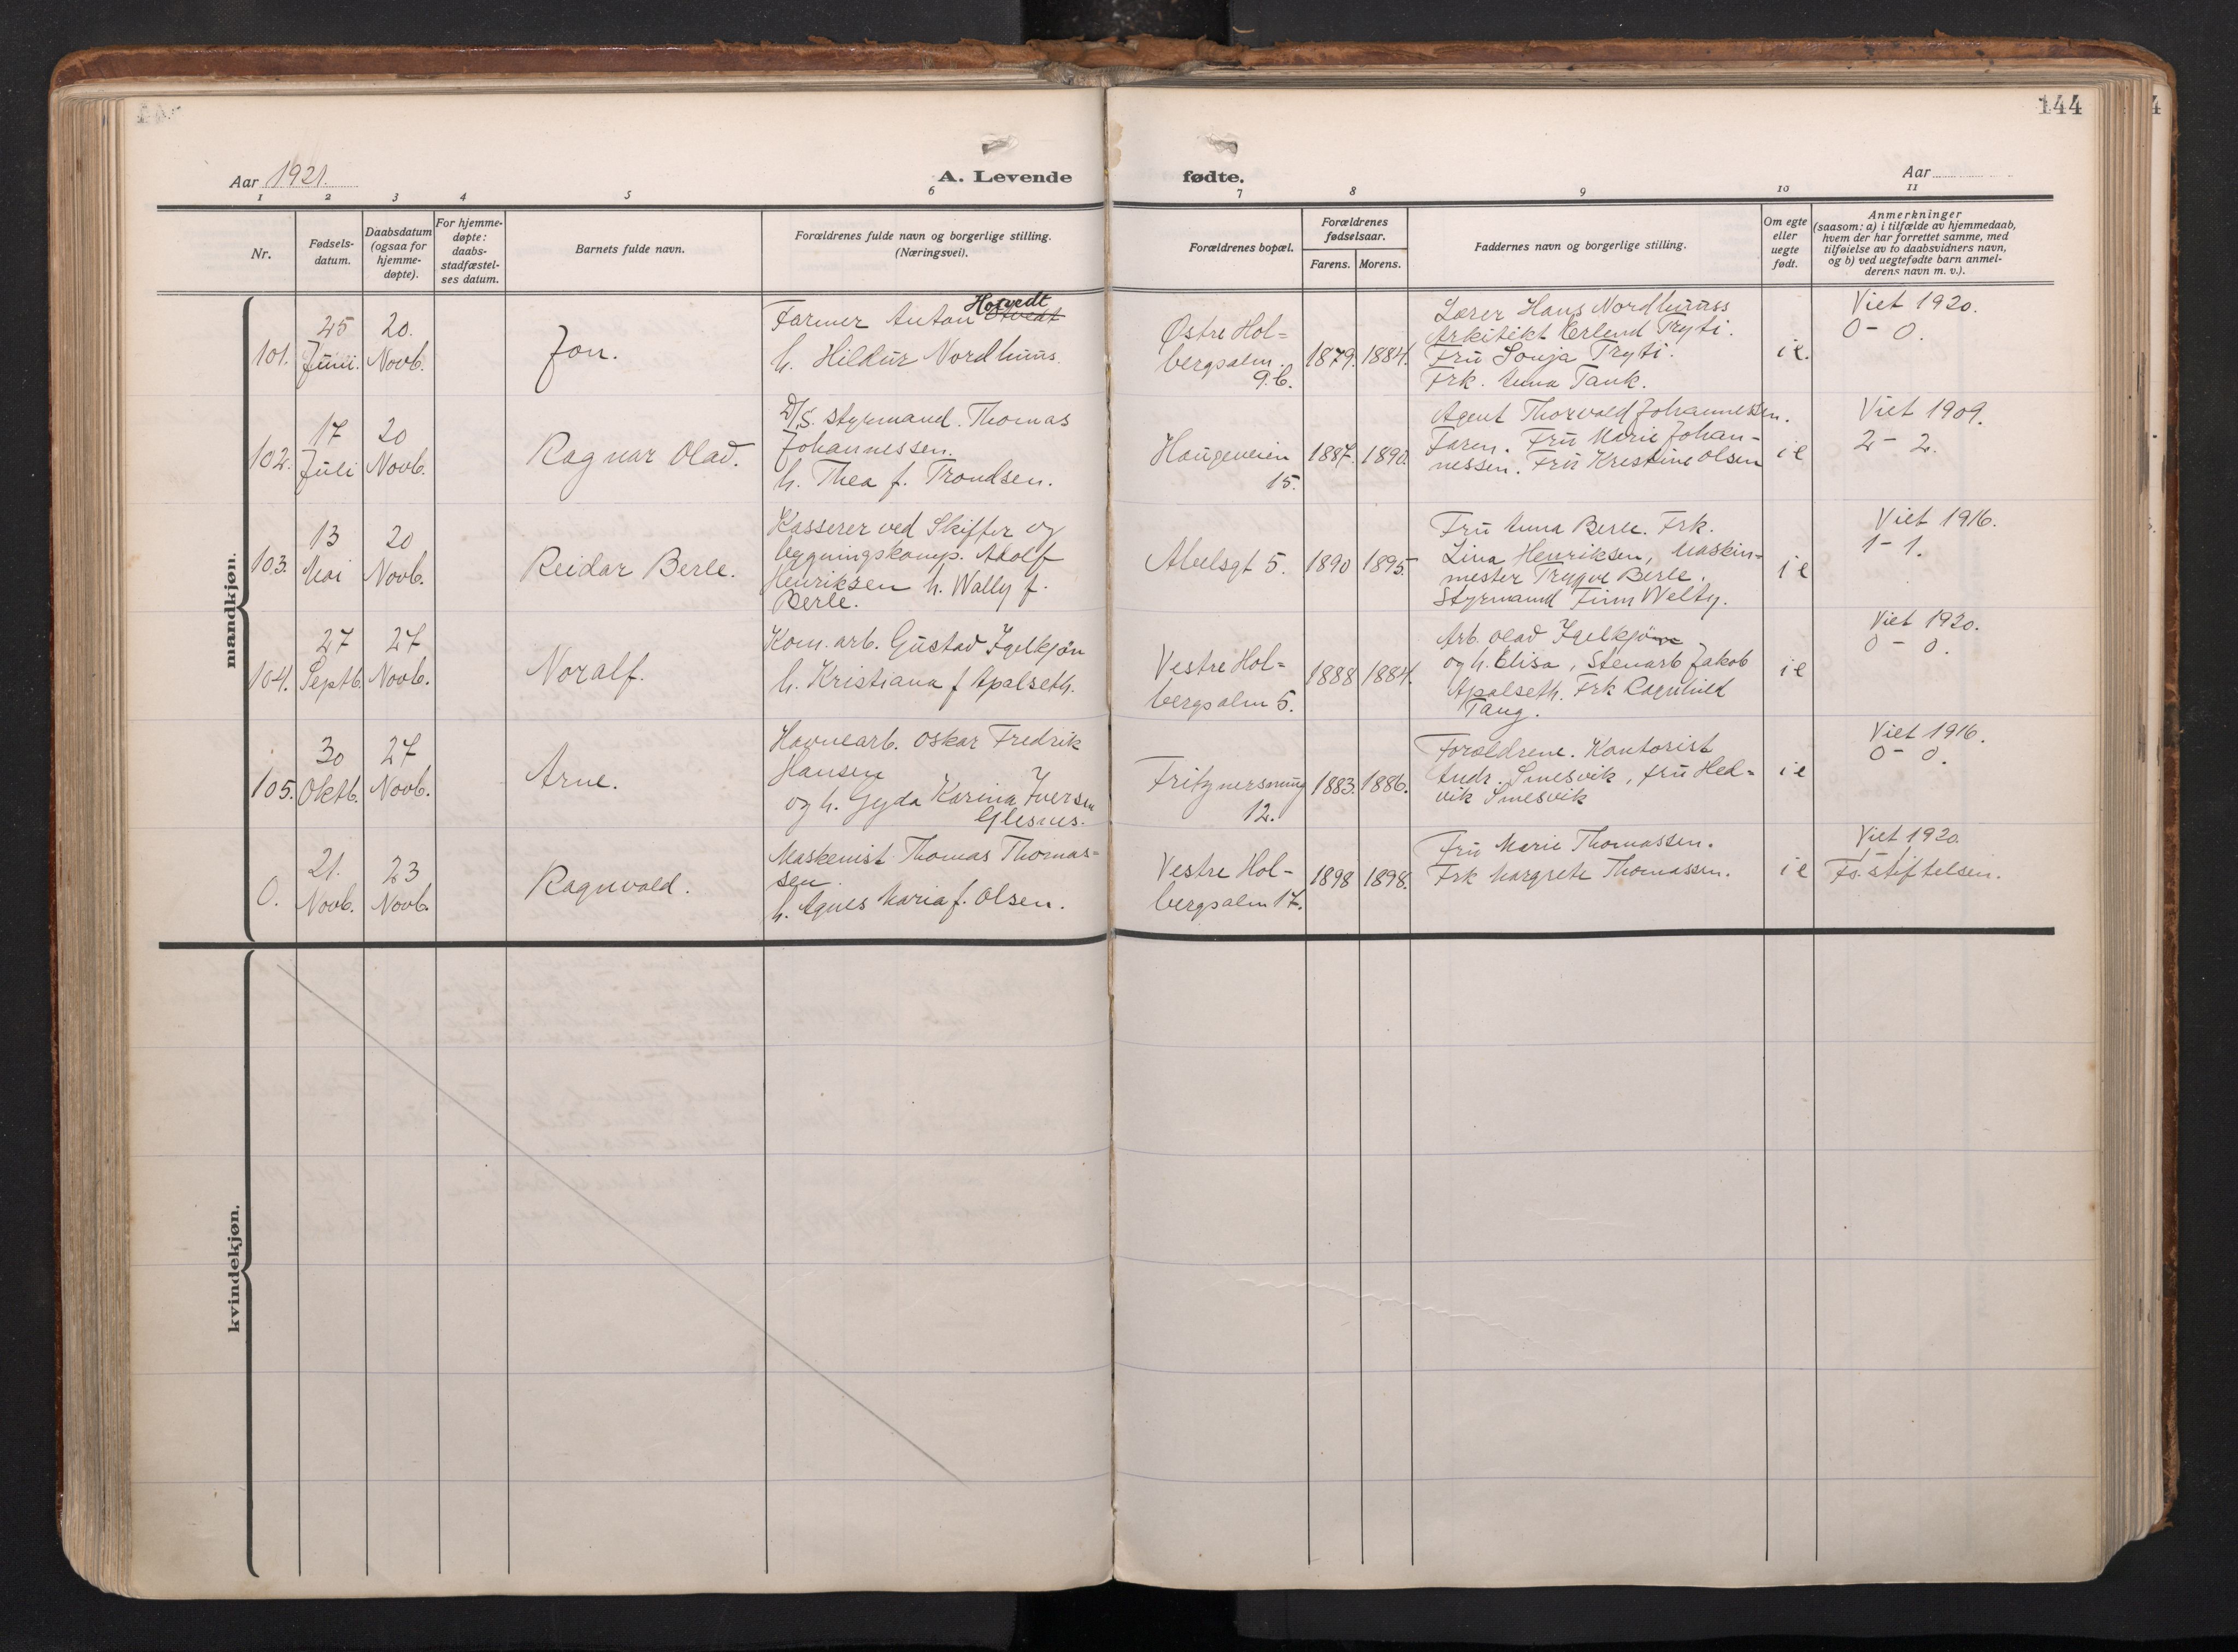 144
Aar 1921.
A. Levende
fødte.
Aar
1 2 3 4 5 6 7 8 9 10 11
Nr.
Fødsels-
datum.
Daabsdatum
(ogsaa for
hjemme-
døpte).
For hjemme-
døpte:
daabs-
stadfæstel-
ses datum.
Barnets fulde navn.
Forældrenes fulde navn og borgerlige stilling.
(Næringsvei).
Forældrenes bopæl.
Forældrenes
fødselsaar.
Farens. Morens.
Faddernes navn og borgerlige stilling.
Om egte
eller
uegte
født.
Anmerkninger
(saasom: a) i tilfælde av hjemmedaab,
hvem der har forrettet samme, med
tilføielse av to daabsvidners navn,
og b) ved uegtefødte barn anmel-
derens navn m. v.).
mandkjøn.
101.
25
Juni.
20.
Novb.
Jon.
Hotvedt
Farmer Anton
h. Hildur Nordhuus.
Østre Hol=
bergsalm.
9b.
1879. 1884.
Lærer Hans Nordhuuss
Arkitekt Erlend Tryti.
Fru Sonja Tryti.
Frk. Anna Tank.
ie.
Viet 1920.
0 - 0.
102.
17
Juli
20
Novb.
Ragnar Olav.
D/S. styrmand. Thomas
Johannessen.
h. Thea f. Trondsen.
Haugeveien
15.
1887. 1890.
Agent Thorvald Johannessen.
Faren. Fru Marie Johan-
nessen. Fru Kristine Olsen
ie
Viet 1909.
2 - 2.
103.
13
Mai
20
Novb.
Reidar Berle.
Kasserer ved Skifter og
bygningskomp. Adolf
Henriksen h. Wally f.
Berle.
Abelsgt 5.
1890 1895.
Fru Anna Berle. Frk.
Lina Henriksen, Maskin=
mester Trygve Berle.
Styrmand Finn Welty.
ie
Viet 1916.
1 - 1.
104.
27
Septb.
27
Novb.
Noralf.
Kom. arb. Gustav Igelkjøn
h. Kristiana f Apalseth.
Vestre Hol=
bergsalm 5.
1888 1884.
Arb. Olav Igelkjøn
og h. Elisa, Stenarb Jakob
Apalseth. Frk Ragnhild
Tang.
ie
Viet 1920.
0 - 0.
105.
30
Oktb.
27
Novb.
Arne.
Havnearb. Oskar Fredrik
Hansen
og h. Gyda Karina Iversen
Glesnes.
Fritznersmug
12.
1883. 1886.
Forældrene. Kontorist
Andr. Smesvik, fru Hed=
vik Smesvik
ie
Viet 1916.
0 - 0.
0.
21.
Novb.
23
Novb.
Ragnvald.
Maskenist Thomas Thomas=
sen.
h. Agnes Maria f. Olsen.
Vestre Hol-
bergsalm 17.
1898 1898.
Fru Marie Thomassen.
Frk Margrete Thomassen.
ie
Viet 1920.
Fø.stiftelsen.
kvindekjøn.